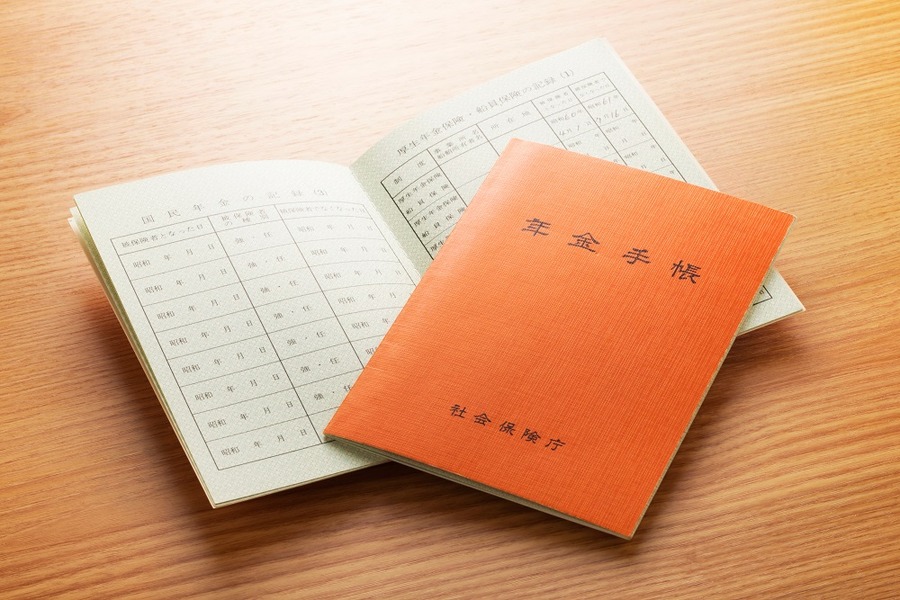 国民年金の記録(3)
被保険者となった日 被保険者の種別 被保険者でなくなった日
昭和 年 月 日 強・任 昭和 年 月 日
昭和 年 月 日 強・任 昭和 年 月 日
昭和 年 月 日 強・任 昭和 年 月 日
昭和 年 月 日 強・任 昭和 年
昭和 年 月 日 強・任
昭和 年 月 日 強・任
昭和 年 月 日
厚生年金保険・船員保険の記録(1)
制度
厚生年金保険
船員保険
厚生年金保険
船員保険
年金手帳
社会保険庁